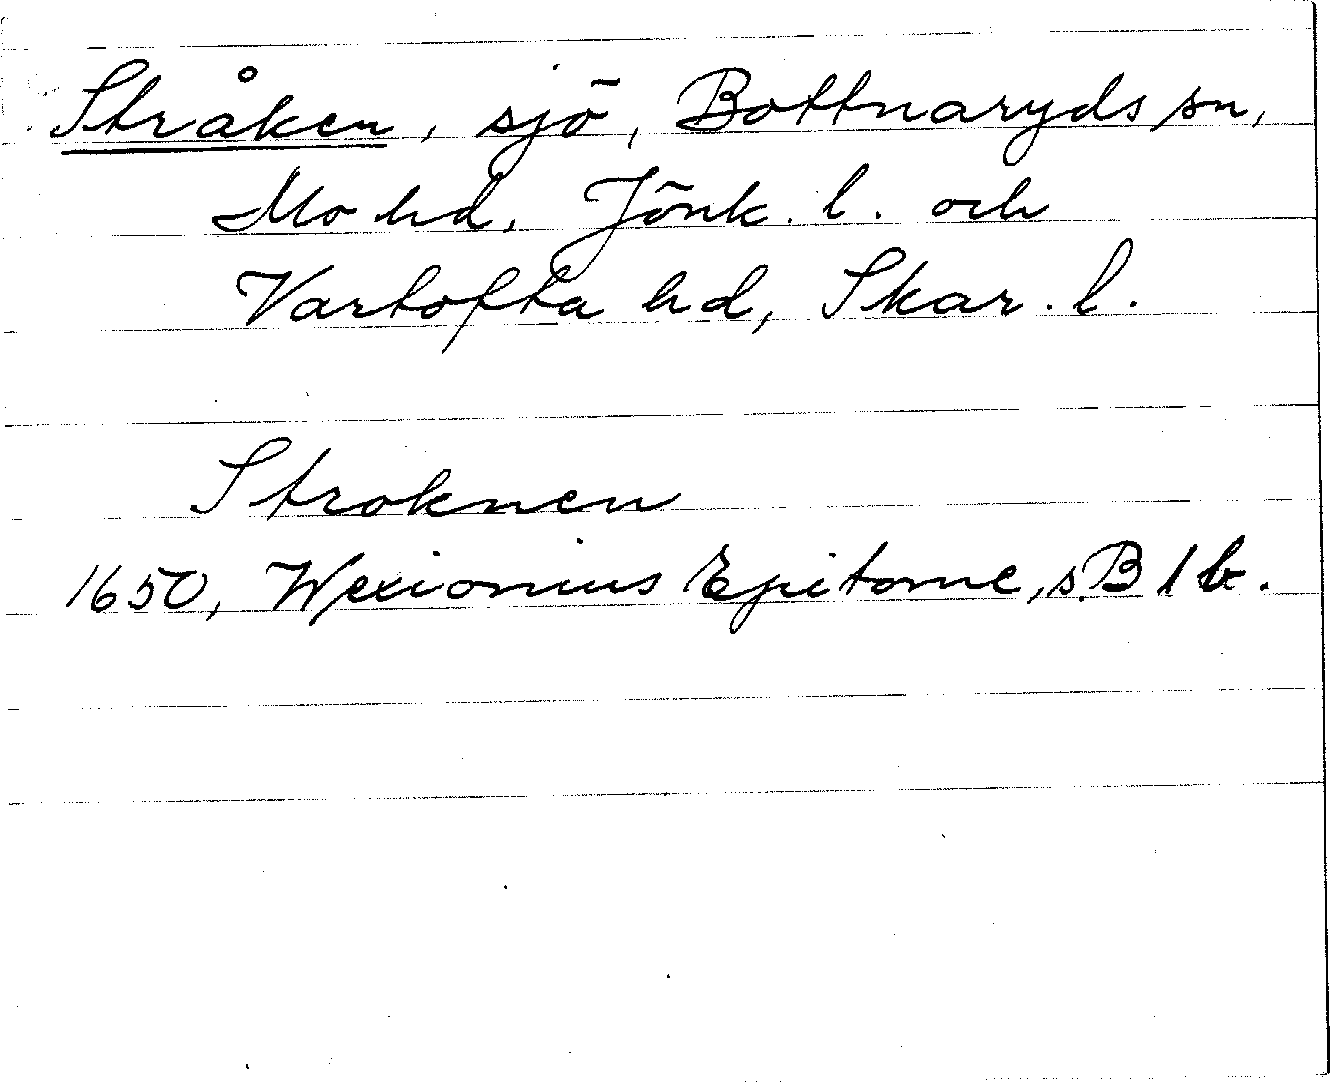 Stråken, sjö, Bottnaryds sn,
Mo hd, Jönk. l. och
Vartofta hd, Skar. l.
Stroknen
1650, Wexionius Epitome, s. B 1 b.